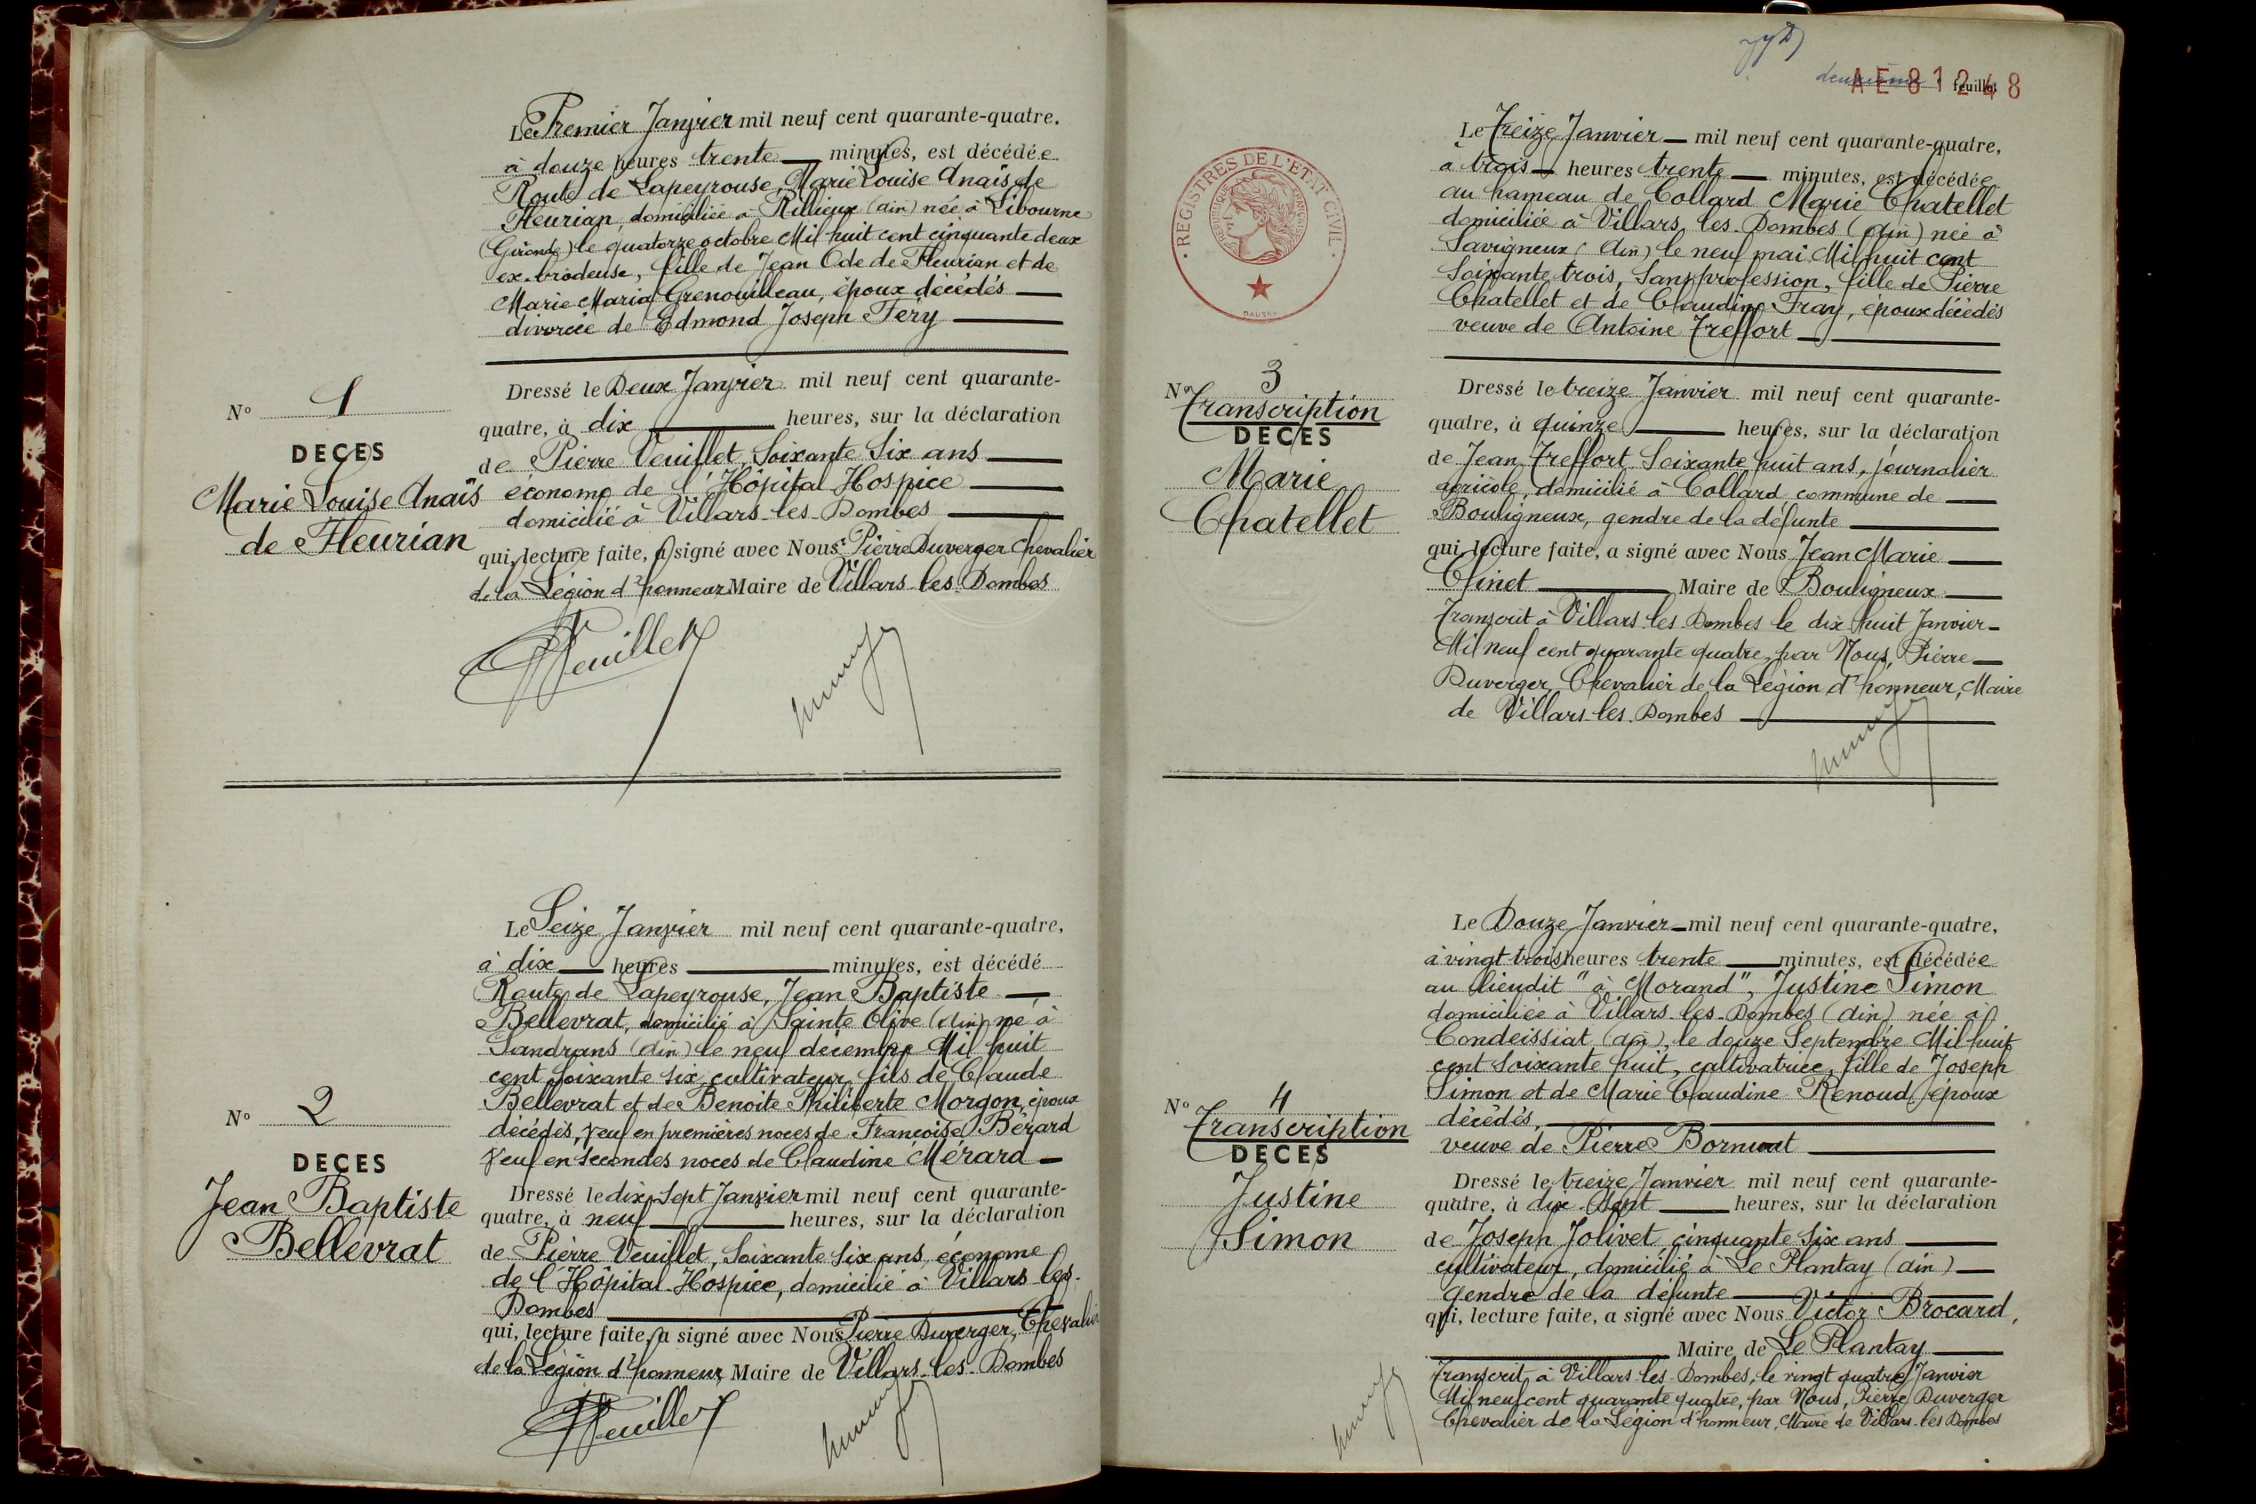 Le Premier Janvier mil neuf cent quarante-quatre.
à douze heures trente minutes, est décédée
Route de Lapeyrouse, Marie Louise Anaïs de
Fleurian, domiciliée à Rillieux (Ain) née à Libourne
(Gironde) le quatorze octobre Mil huit cent cinquante deux
ex-brodeuse, fille de Jean Ode de Fleurian et de
Marie Maria Grenouilleau, époux décédés
divorcée de Edmond Joseph Féry
Dressé le Deux Janvier mil neuf cent quarante-
quatre, à dix heures, sur la déclaration
de Pierre Veuillet, Soixante Six ans
économe de l'Hôpital Hospice
domicilié à Villars-les-Dombes
qui, lecture faite, a signé avec Nous Pierre Duverger Chevalier
de la Légion d'honneur Maire de Villars les Dombes
N° 1
DECES
Marie Louise Anaïs
de Fleurian
Veuillet
Le Seize Janvier mil neuf cent quarante-quatre,
à dix heures minutes, est décédé
Route de Lapeyrouse, Jean Baptiste
Bellevrat, domicilié à Sainte Olive (Ain) né à
Sandrans (Ain) le neuf décembre Mil huit
cent soixante six, cultivateur, fils de Claude
Bellevrat et de Benoite Philiberte Morgon, époux
décédés, veuf en premières noces de Françoise Bérard
veuf en secondes noces de Claudine Mérard
Dressé le dix-Sept Janvier mil neuf cent quarante-
quatre, à neuf heures, sur la déclaration
de Pierre Veuillet, Soixante Six ans, économe
de l'Hôpital-Hospice, domicilié à Villars les
Dombes
qui, lecture faite, a signé avec Nous Pierre Duverger, Chevalier
de la Légion d'honneur, Maire de Villars-les-Dombes
N° 2
DECES
Jean Baptiste
Bellevrat
Veuillet
deuxième feuillet
AE 81248
REGISTRES DE L'ETAT CIVIL
Le Treize Janvier mil neuf cent quarante-quatre,
à trois heures trente minutes, est décédée
au hameau de Collard Marie Chatellet
domiciliée à Villars les Dombes (Ain) née à
Savigneux (Ain) le neuf mai Mil huit cent
Soixante trois, Sans profession, fille de Pierre
Chatellet et de Claudine Fray, époux décédés
veuve de Antoine Treffort
Dressé le treize Janvier mil neuf cent quarante-
quatre, à quinze heures, sur la déclaration
de Jean Treffort Soixante huit ans, journalier
agricole, domicilié à Collard commune de
Bouligneux, gendre de la défunte
qui, lecture faite, a signé avec Nous Jean Marie
Clinet Maire de Bouligneux
Transcrit à Villars les Dombes le dix huit Janvier
Mil neuf cent quarante quatre, par Nous, Pierre
Duverger, Chevalier de la Légion d'honneur, Maire
de Villars-les-Dombes
N° 3
Transcription
DECES
Marie
Chatellet
Le Douze Janvier mil neuf cent quarante-quatre,
à vingt trois heures trente minutes, est décédée
au lieudit "à Morand", Justine Simon
domiciliée à Villars-les-Dombes (Ain) née à
Condeissiat (Ain), le douze Septembre Mil huit
cent soixante huit, cultivatrice, fille de Joseph
Simon et de Marie Claudine Renoud, époux
décédés,
veuve de Pierre Bornuat
Dressé le treize Janvier mil neuf cent quarante-
quatre, à dix-Sept heures, sur la déclaration
de Joseph Jolivet cinquante six ans
cultivateur, domicilié à Le Plantay (Ain)
gendre de la défunte
qui, lecture faite, a signé avec Nous Victor Brocard,
Maire de Le Plantay
Transcrit à Villars-les-Dombes, le vingt quatre Janvier
Mil neuf cent quarante quatre, par Nous, Pierre Duverger
Chevalier de la Légion d'honneur, Maire de Villars-les Dombes
N° 4
Transcription
DECES
Justine
Simon